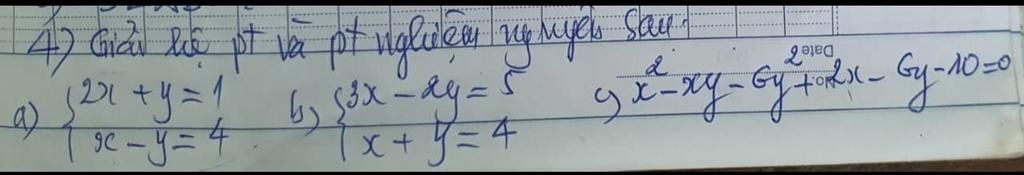 4) Giải hệ pt và pt nghiệm nguyên sau:
a) { 2x + y = 1
x - y = 4
b) { 3x - 2y = 5
x + y = 4
c) x² - xy - 6y² + 2x - 6y - 10 = 0
Date
No.